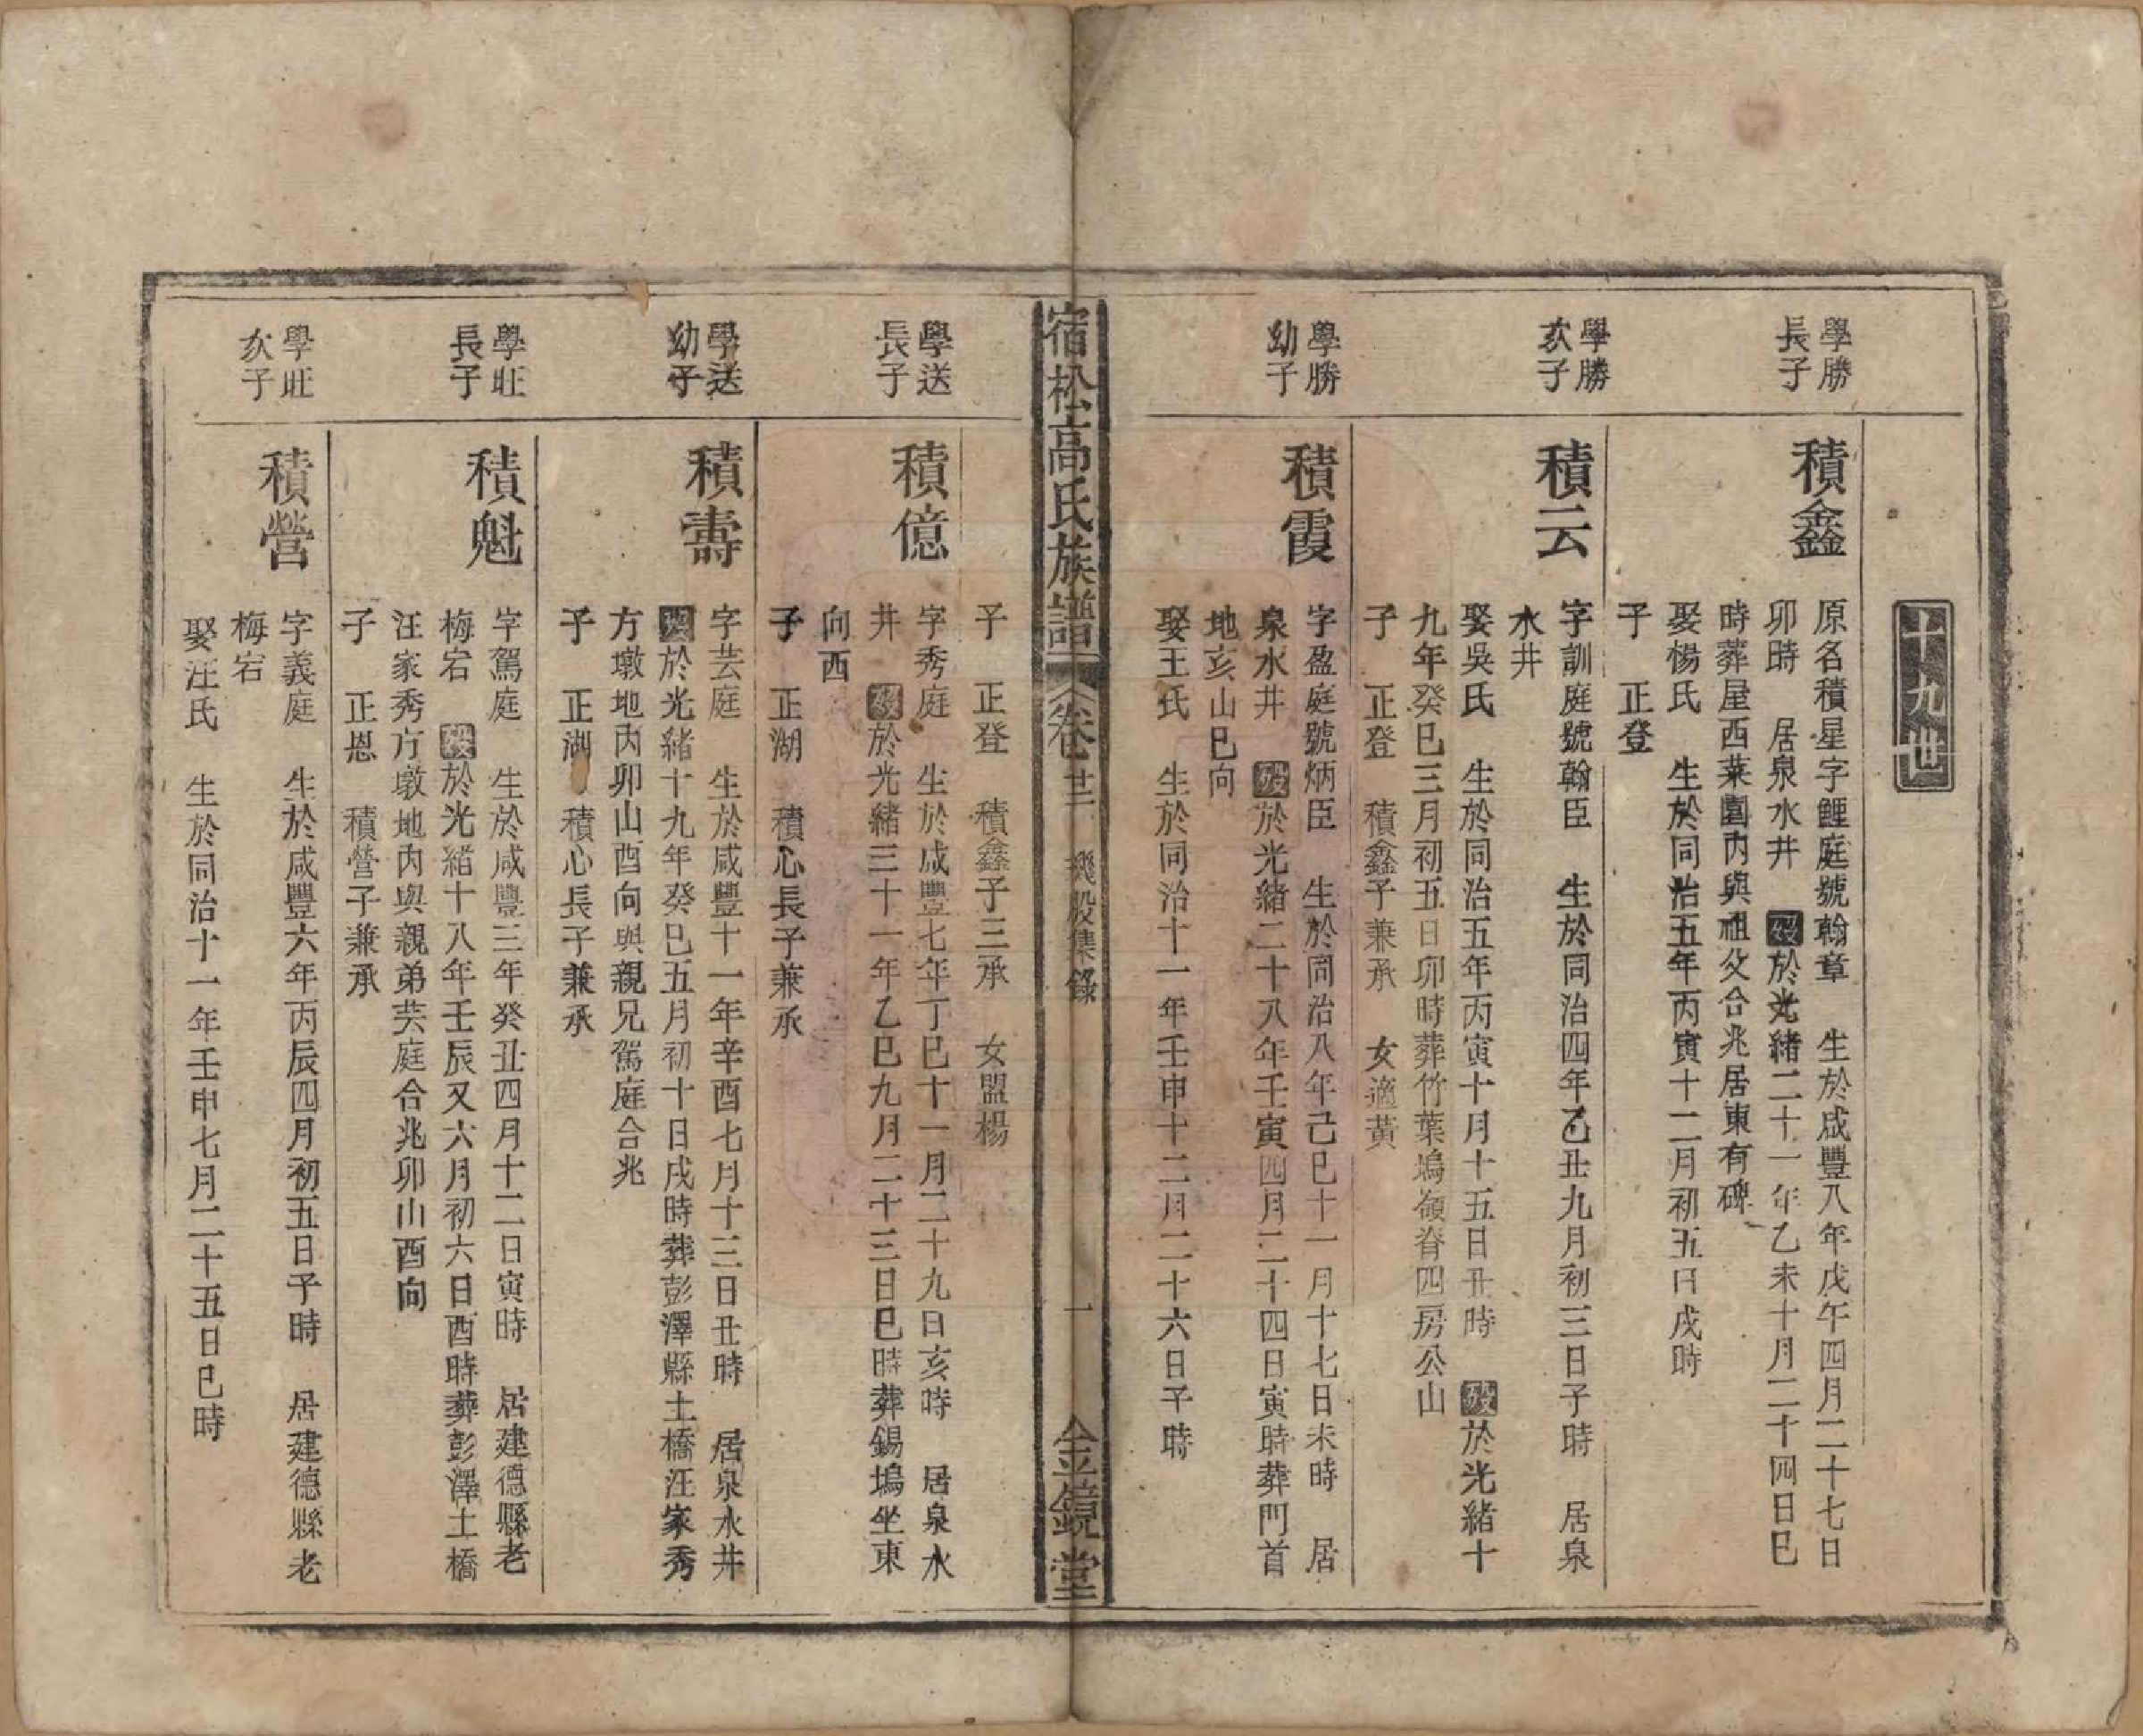 十九世
學勝
長子
積鑫
原名積星字鯉庭號翰章　生於咸豐八年戊午四月二十七日
卯時　居泉水井　歿於光緒二十一年乙未十月二十四日巳
時葬屋西菜園內與祖父合兆居東有碑
娶楊氏　生於同治五年丙寅十二月初五日戌時
子　正登
學勝
次子
積云
字訓庭號翰臣　生於同治四年乙丑九月初三日子時　居泉
水井
娶吳氏　生於同治五年丙寅十月十五日丑時　歿於光緒十
九年癸巳三月初五日卯時葬竹葉塢嶺脊四房公山
子　正登　積鑫子兼承　女適黃
學勝
幼子
積霞
字盈庭號炳臣　生於同治八年己巳十一月十七日未時　居
泉水井　歿於光緒二十八年壬寅四月二十四日寅時葬門首
地亥山巳向
娶王氏　生於同治十一年壬申十二月二十六日子時
宿松高氏族譜　卷廿二　機股集錄　一　金鏡堂
子　正登　積鑫子三承　女盟楊
學送
長子
積億
字秀庭　生於咸豐七年丁巳十一月二十九日亥時　居泉水
井　歿於光緒三十一年乙巳九月二十三日巳時葬錫塢坐東
向西
子　正湖　積心長子兼承
學送
幼子
積壽
字芸庭　生於咸豐十一年辛酉七月十三日丑時　居泉水井
歿於光緒十九年癸巳五月初十日戌時葬彭澤縣土橋汪家秀
方墩地內卯山酉向與親兄駕庭合兆
子　正湖　積心長子兼承
學旺
長子
積魁
字駕庭　生於咸豐三年癸丑四月十二日寅時　居建德縣老
梅宕　歿於光緒十八年壬辰又六月初六日酉時葬彭澤土橋
汪家秀方墩地內與親弟芸庭合兆卯山酉向
子　正恩　積營子兼承
學旺
次子
積營
字義庭　生於咸豐六年丙辰四月初五日子時　居建德縣老
梅宕
娶汪氏　生於同治十一年壬申七月二十五日巳時